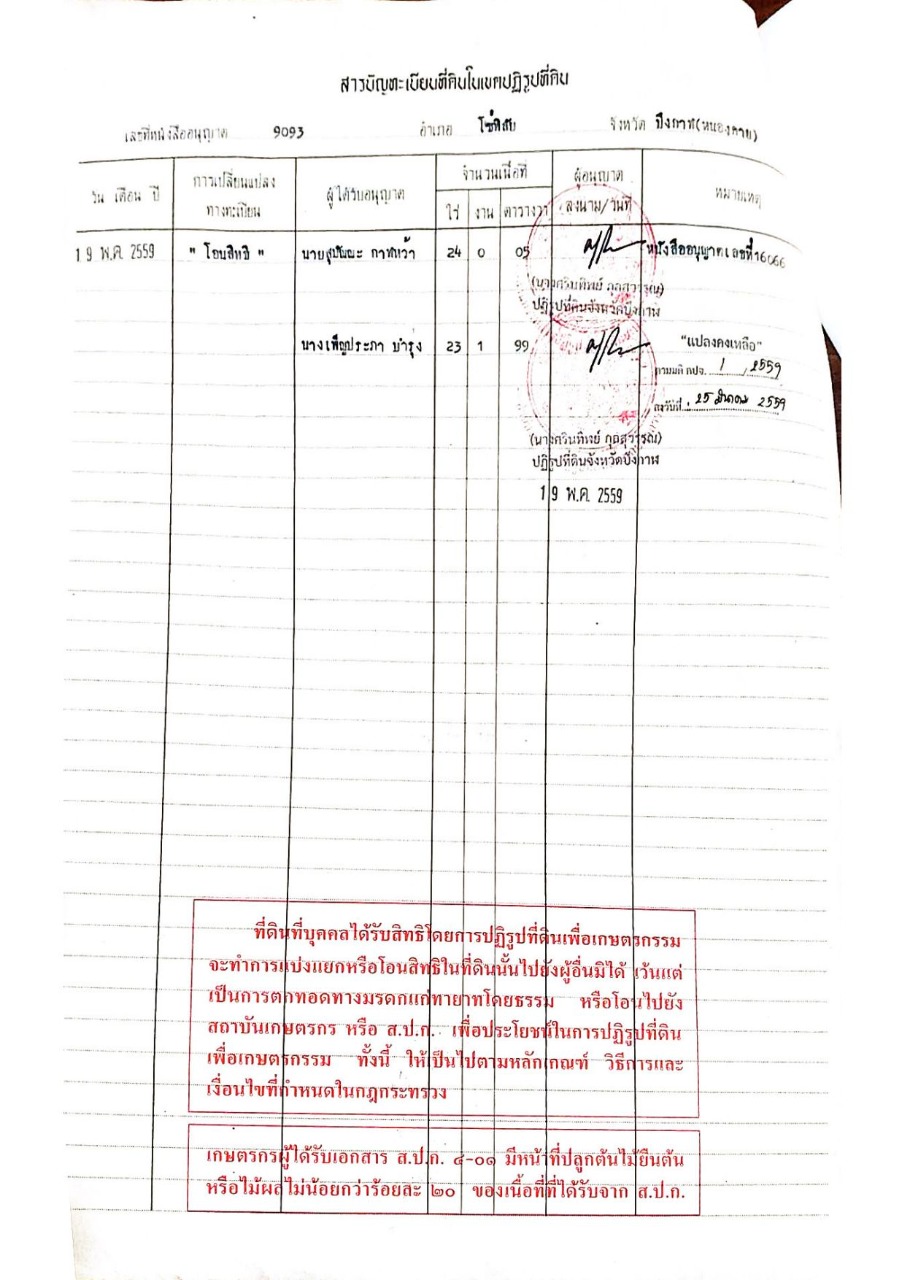 สารบัญทะเบียนที่ดินในเขตปฏิรูปที่ดิน
เลขที่หนังสืออนุญาต 9093 อำเภอ โซ่พิสัย จังหวัด บึงกาฬ(หนองคาย)
วัน เดือน ปี การเปลี่ยนแปลงทางทะเบียน ผู้ได้รับอนุญาต จำนวนเนื้อที่ ไร่ งาน ตารางวา ผู้อนุญาต ลงนาม/วันที่ หมายเหตุ
19 พ.ค. 2559 " โอนสิทธิ " นายสุปัฒนะ กาฬหว้า 24 0 05 หนังสืออนุญาตเลขที่ 16066
(นางศรินทิพย์ กุลสุวรรณ)
ปฏิรูปที่ดินจังหวัดบึงกาฬ
นางเพ็ญประภา บำรุง 23 1 99 "แปลงคงเหลือ"
ตามมติ คปจ. 1 / 2559
ลงวันที่ 25 มีนาคม 2559
(นางศรินทิพย์ กุลสุวรรณ)
ปฏิรูปที่ดินจังหวัดบึงกาฬ
19 พ.ค. 2559
ที่ดินที่บุคคลได้รับสิทธิโดยการปฏิรูปที่ดินเพื่อเกษตรกรรม
จะทำการแบ่งแยกหรือโอนสิทธิในที่ดินนั้นไปยังผู้อื่นมิได้ เว้นแต่
เป็นการตกทอดทางมรดกแก่ทายาทโดยธรรม หรือโอนไปยัง
สถาบันเกษตรกร หรือ ส.ป.ก. เพื่อประโยชน์ในการปฏิรูปที่ดิน
เพื่อเกษตรกรรม ทั้งนี้ ให้เป็นไปตามหลักเกณฑ์ วิธีการและ
เงื่อนไขที่กำหนดในกฎกระทรวง
เกษตรกรผู้ได้รับเอกสาร ส.ป.ก. ๔-๐๑ มีหน้าที่ปลูกต้นไม้ยืนต้น
หรือไม้ผลไม่น้อยกว่าร้อยละ ๒๐ ของเนื้อที่ที่ได้รับจาก ส.ป.ก.